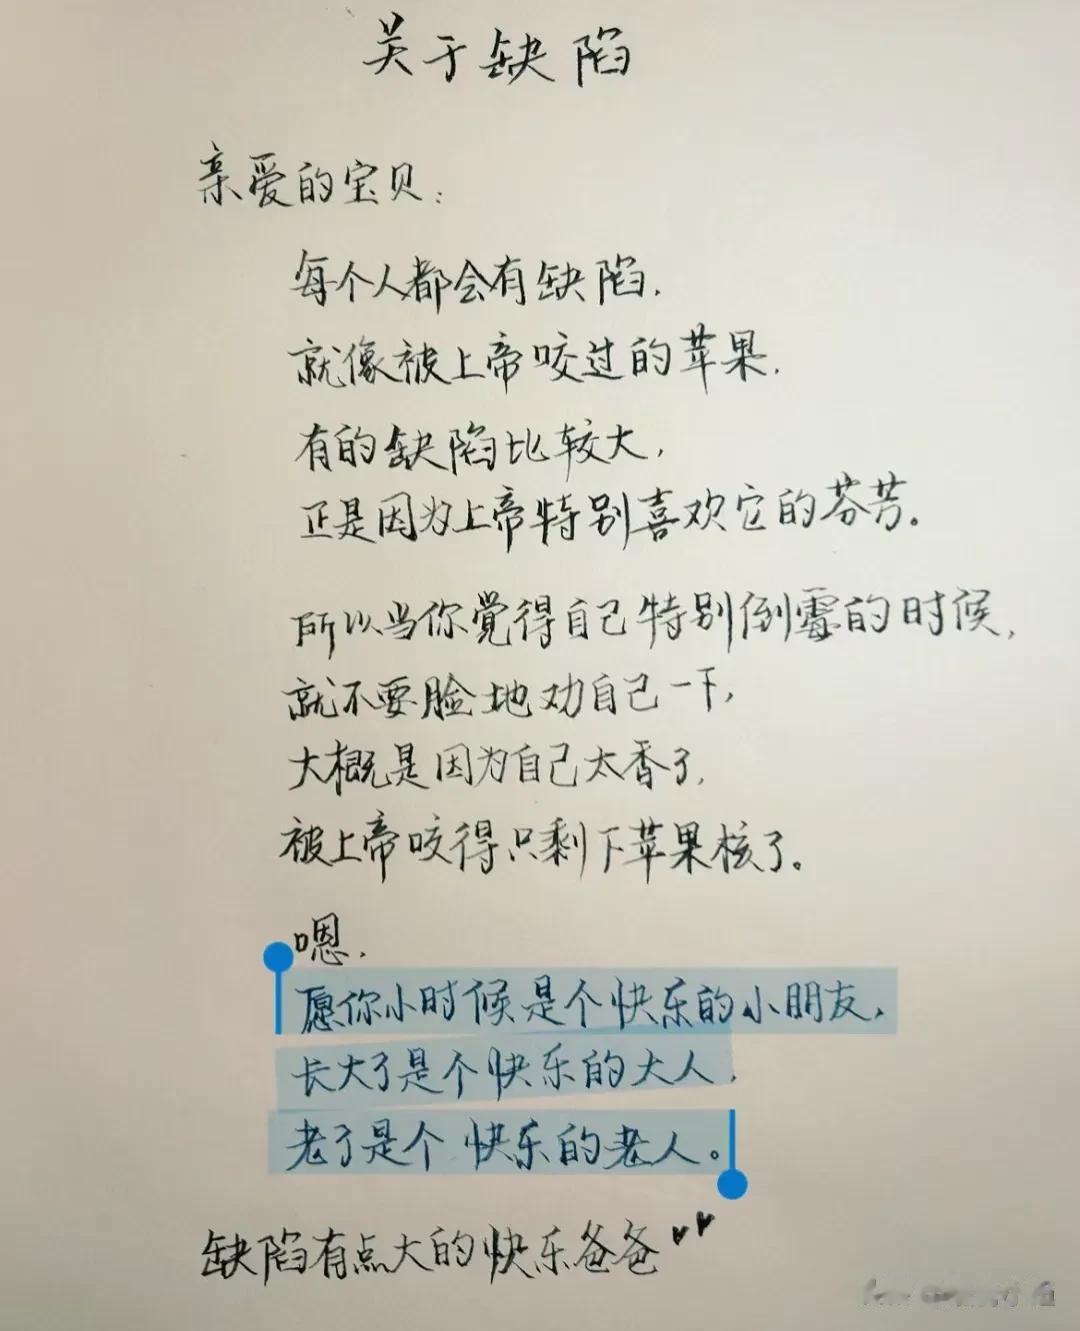 关于缺陷
亲爱的宝贝：
每个人都会有缺陷，
就像被上帝咬过的苹果，
有的缺陷比较大，
正是因为上帝特别喜欢它的芬芳。
所以当你觉得自己特别倒霉的时候，
就不要脸地劝自己一下，
大概是因为自己太香了，
被上帝咬得只剩下苹果核了。
嗯，
愿你小时候是个快乐的小朋友，
长大了是个快乐的大人，
老了是个快乐的老人。
缺陷有点大的快乐爸爸